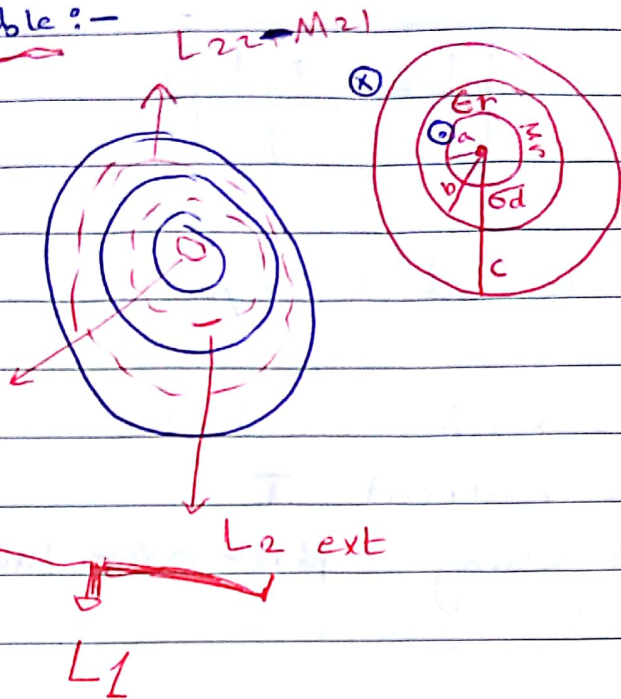 ble :-
L22-M21
x
Er
a
b
σd
c
L2 ext
L1